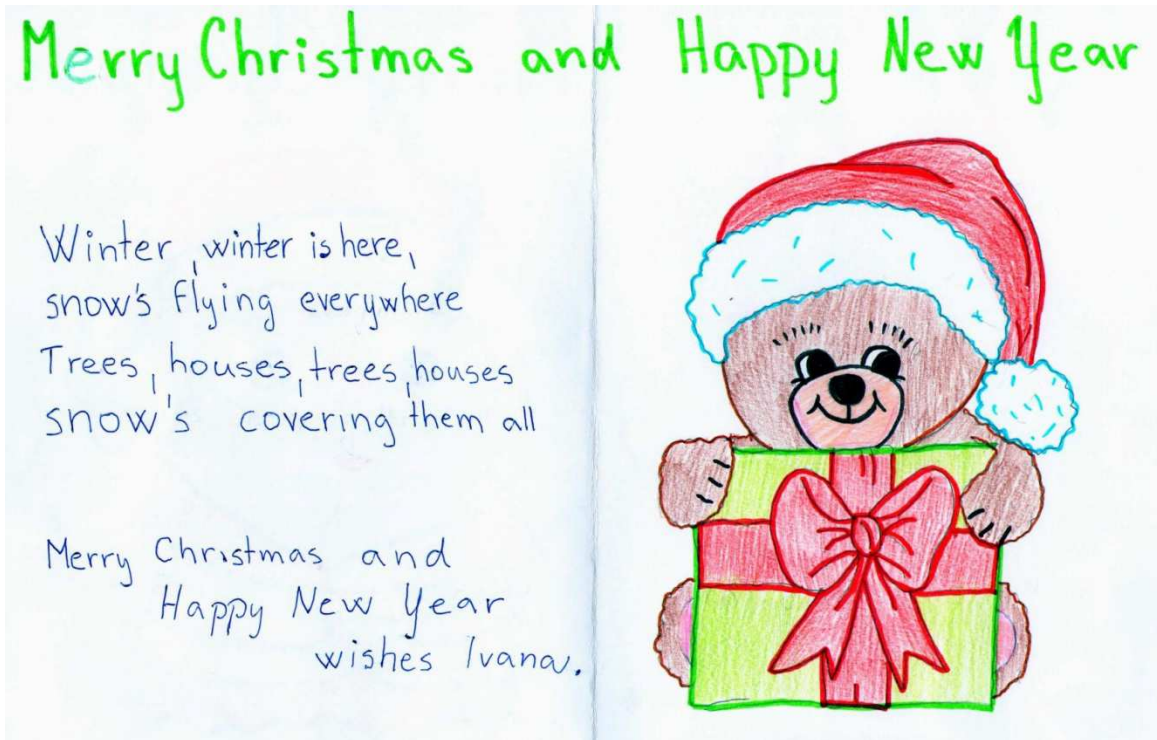 Merry Christmas and Happy New Year
Winter, winter is here,
snow's flying everywhere
Trees, houses, trees, houses
snow's covering them all
Merry Christmas and
Happy New Year
wishes Ivana.